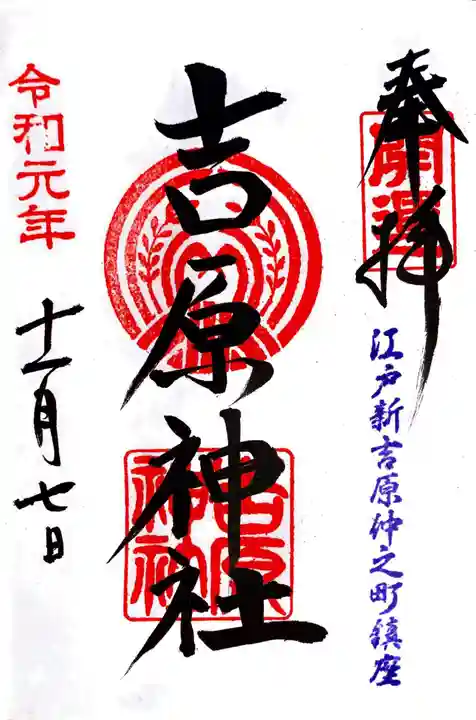 奉拝
開運
江戸新吉原仲之町鎮座
吉原神社
吉原神社
令和元年
十一月七日